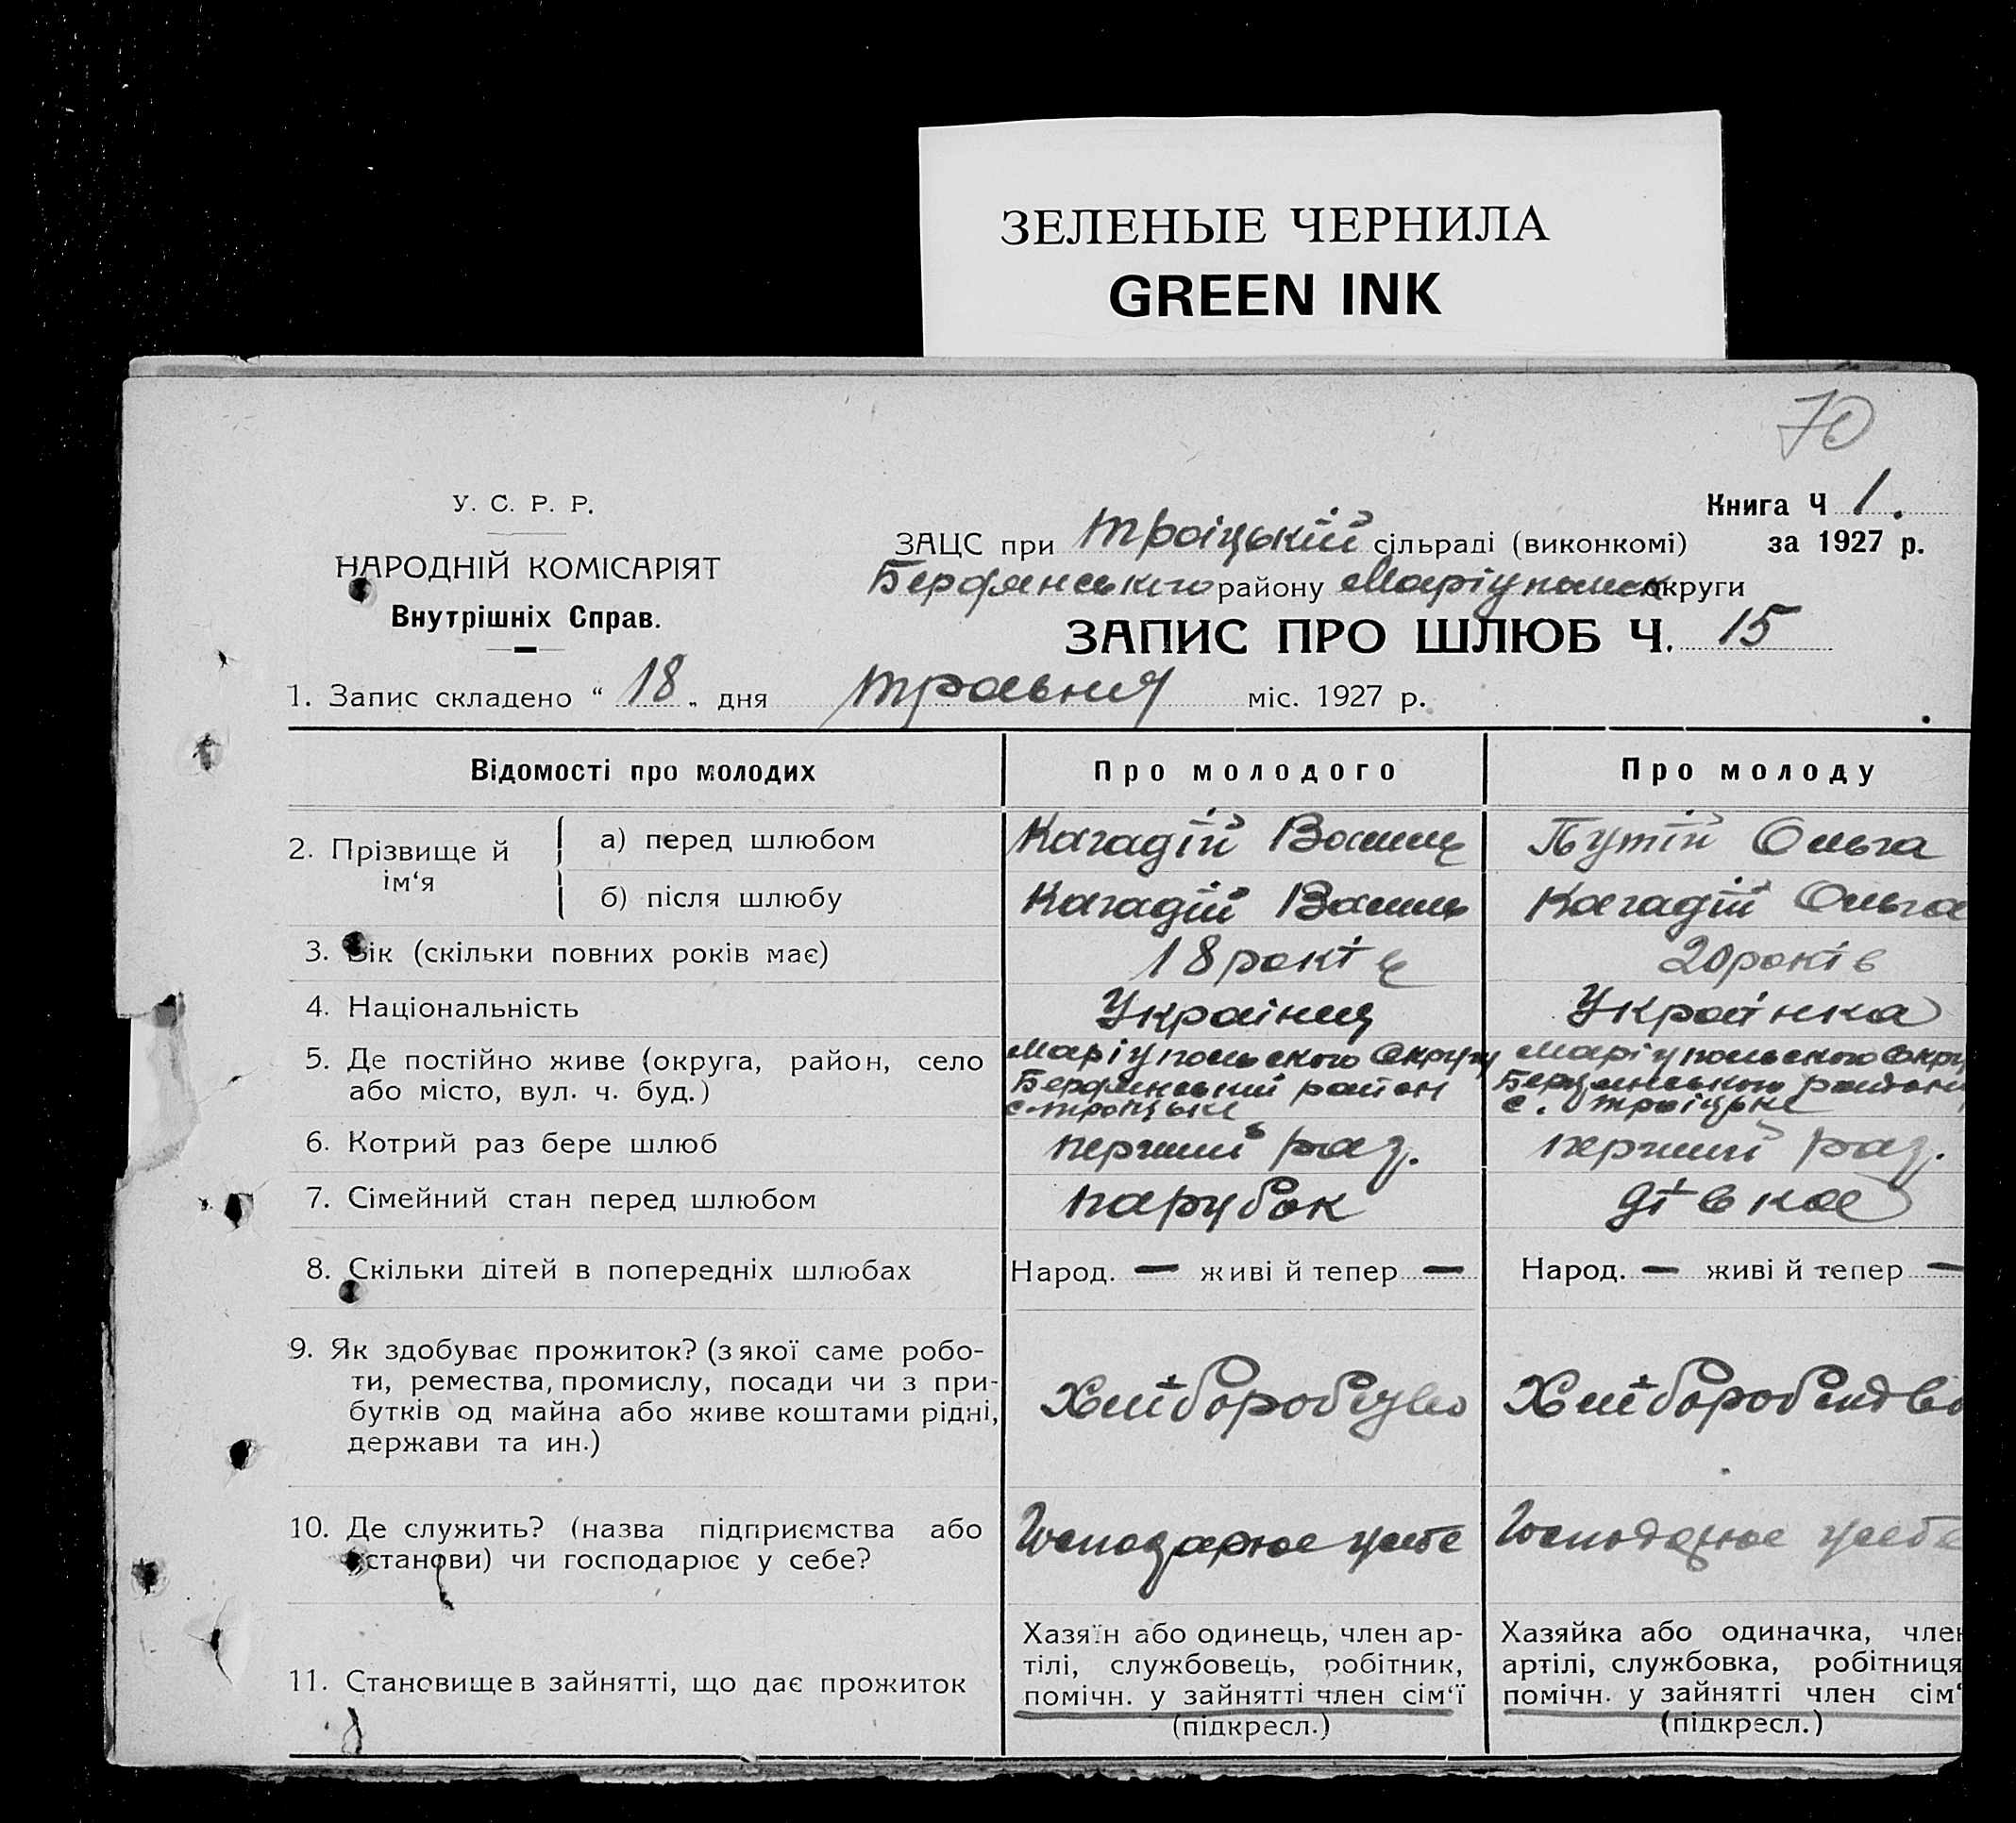 ЗЕЛЕНЫЕ ЧЕРНИЛА
GREEN INK
70
У. С. Р. Р.
НАРОДНІЙ КОМІСАРІЯТ
Внутрішніх Справ.
Книга Ч 1.
ЗАЦС при Троіцькій сільраді (виконкомі) за 1927 р.
Бердянського району Маріупольск округи
ЗАПИС ПРО ШЛЮБ Ч. 15
1. Запис складено “ 18 „ дня травня міс. 1927 р.
Відомості про молодих Про молодого Про молоду
2. Прізвище й ім‘я
а) перед шлюбом Кагадій Василь Путій Ольга
б) після шлюбу Кагадій Василь Кагадій Ольга
3. Вік (скільки повних років має) 18 років 20 років
4. Національність Украінец Украінка
5. Де постійно живе (округа, район, село
або місто, вул. ч. буд.)
Маріупольского Округу
Бердянський район
с. Троіцьке
Маріупольского Окру
Бердянського району
с. Троіцьке
6. Котрий раз бере шлюб перший раз. перший раз.
7. Сімейний стан перед шлюбом парубок дівка
8. Скільки дітей в попередніх шлюбах Народ. — живі й тепер — Народ. — живі й тепер —
9. Як здобуває прожиток? (з якої саме робо-
ти, ремества, промислу, посади чи з при-
бутків од майна або живе коштами рідні,
держави та ин.)
10. Де служить? (назва підприємства або
установи) чи господарює у себе?
Господарює у себе Господарює у себе
11. Становище в зайнятті, що дає прожиток
Хазяїн або одинець, член ар-
тілі, службовець, робітник,
помічн. у зайнятті член сім‘ї
(підкресл.)
Хазяйка або одиначка, член
артілі, службовка, робітниця
помічн. у зайнятті член сім‘
(підкресл.)